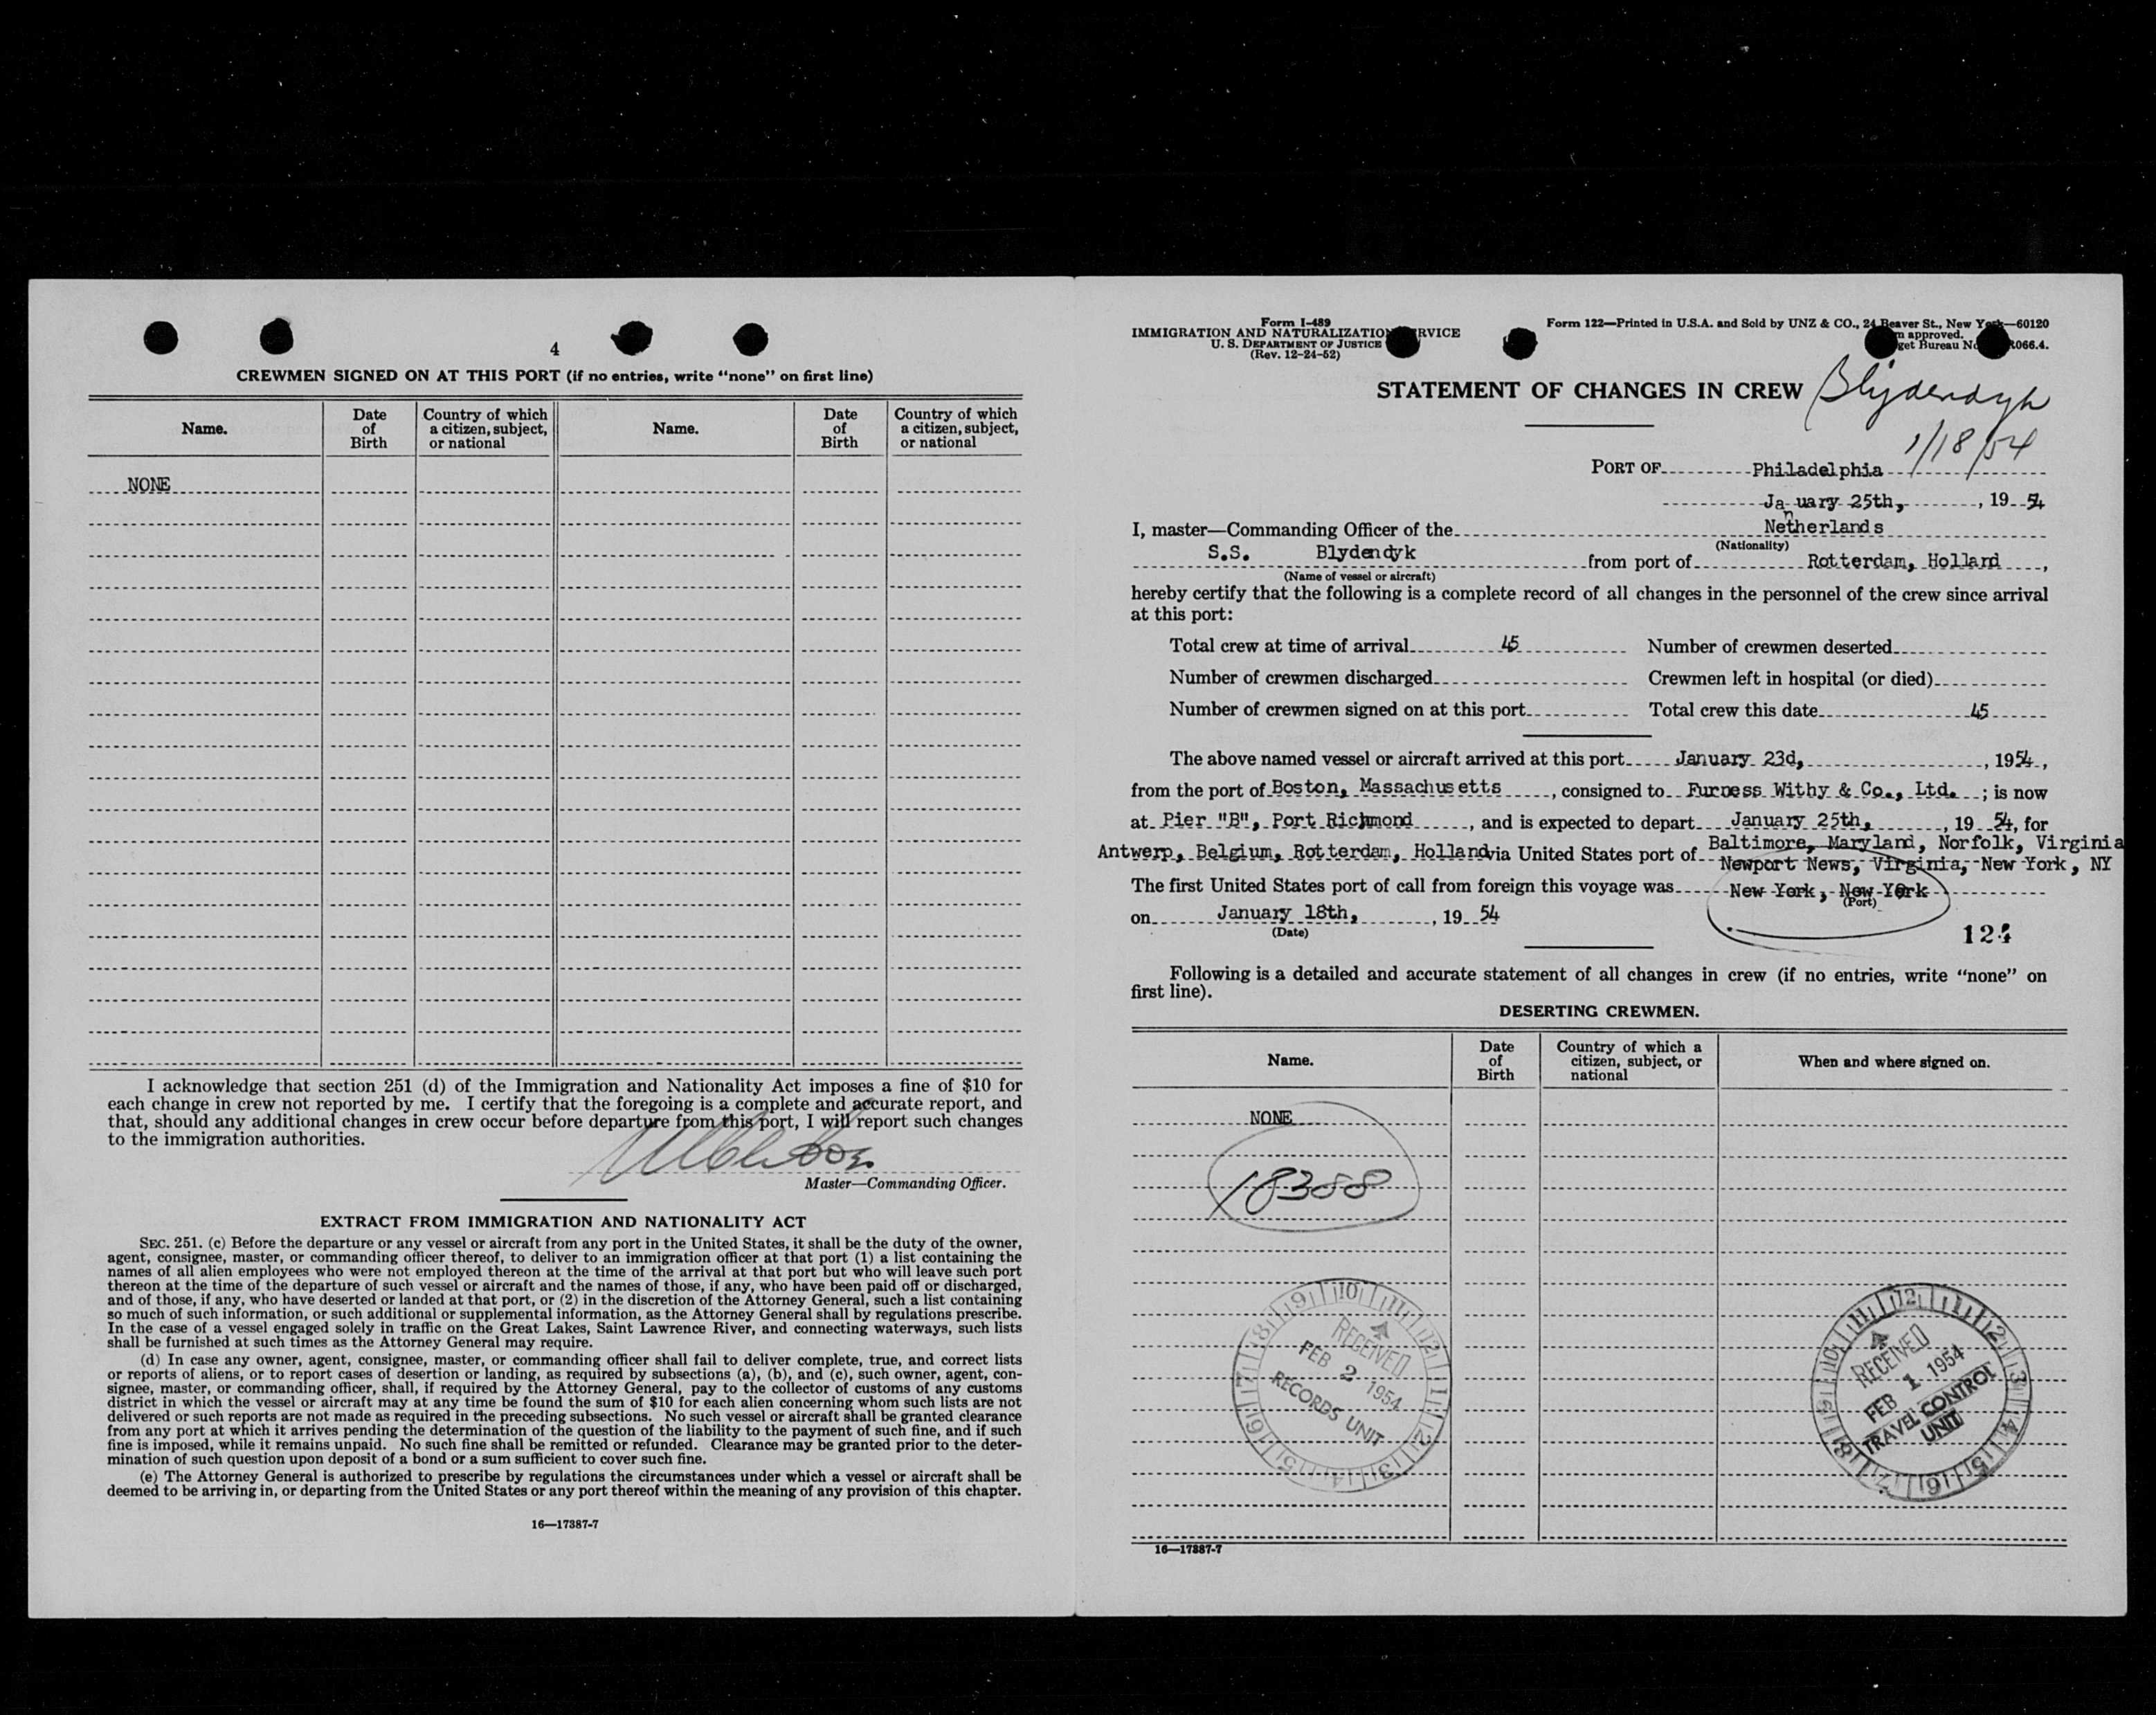 4
CREWMEN SIGNED ON AT THIS PORT (if no entries, write “none” on first line)
Name.
Date of Birth
Country of which a citizen, subject, or national
Name.
Date of Birth
Country of which a citizen, subject, or national
NONE
I acknowledge that section 251 (d) of the Immigration and Nationality Act imposes a fine of $10 for
each change in crew not reported by me. I certify that the foregoing is a complete and accurate report, and
that, should any additional changes in crew occur before departure from this port, I will report such changes
to the immigration authorities.
Master—Commanding Officer.
EXTRACT FROM IMMIGRATION AND NATIONALITY ACT
SEC. 251. (c) Before the departure or any vessel or aircraft from any port in the United States, it shall be the duty of the owner,
agent, consignee, master, or commanding officer thereof, to deliver to an immigration officer at that port (1) a list containing the
names of all alien employees who were not employed thereon at the time of the arrival at that port but who will leave such port
thereon at the time of the departure of such vessel or aircraft and the names of those, if any, who have been paid off or discharged,
and of those, if any, who have deserted or landed at that port, or (2) in the discretion of the Attorney General, such a list containing
so much of such information, or such additional or supplemental information, as the Attorney General shall by regulations prescribe.
In the case of a vessel engaged solely in traffic on the Great Lakes, Saint Lawrence River, and connecting waterways, such lists
shall be furnished at such times as the Attorney General may require.
(d) In case any owner, agent, consignee, master, or commanding officer shall fail to deliver complete, true, and correct lists
or reports of aliens, or to report cases of desertion or landing, as required by subsections (a), (b), and (c), such owner, agent, con-
signee, master, or commanding officer, shall, if required by the Attorney General, pay to the collector of customs of any customs
district in which the vessel or aircraft may at any time be found the sum of $10 for each alien concerning whom such lists are not
delivered or such reports are not made as required in the preceding subsections. No such vessel or aircraft shall be granted clearance
from any port at which it arrives pending the determination of the question of the liability to the payment of such fine, and if such
fine is imposed, while it remains unpaid. No such fine shall be remitted or refunded. Clearance may be granted prior to the deter-
mination of such question upon deposit of a bond or a sum sufficient to cover such fine.
(e) The Attorney General is authorized to prescribe by regulations the circumstances under which a vessel or aircraft shall be
deemed to be arriving in, or departing from the United States or any port thereof within the meaning of any provision of this chapter.
16—17387-7
Form I-489
IMMIGRATION AND NATURALIZATION SERVICE
U. S. DEPARTMENT OF JUSTICE
(Rev. 12-24-52)
Form 122—Printed in U.S.A. and Sold by UNZ & CO., 24 Beaver St., New York—60120
approved.
get Bureau No. R066.4.
STATEMENT OF CHANGES IN CREW Blijdendyk
1/18/54
PORT OF Philadelphia
January 25th, , 19 54
I, master—Commanding Officer of the Netherlands
(Nationality)
S.S. Blydendyk from port of Rotterdam, Holland ,
(Name of vessel or aircraft)
hereby certify that the following is a complete record of all changes in the personnel of the crew since arrival
at this port:
Total crew at time of arrival 45 Number of crewmen deserted
Number of crewmen discharged Crewmen left in hospital (or died)
Number of crewmen signed on at this port Total crew this date 45
The above named vessel or aircraft arrived at this port January 23d, , 1954 ,
from the port of Boston, Massachusetts , consigned to Furness Withy & Co., Ltd. ; is now
at Pier "B", Port Richmond , and is expected to depart January 25th, , 19 54, for
Antwerp, Belgium, Rotterdam, Holland via United States port of Baltimore, Maryland, Norfolk, Virginia
Newport News, Virginia, New York, NY
The first United States port of call from foreign this voyage was New York, New York
(Port)
on January 18th, , 19 54
(Date)
124
Following is a detailed and accurate statement of all changes in crew (if no entries, write “none” on
first line).
DESERTING CREWMEN.
Name.
Date of Birth
Country of which a citizen, subject, or national
When and where signed on.
NONE
18388
9 10 11 12 1 2 3 4 5 6 7 8
RECEIVED
FEB 2 1954
RECORDS UNIT
12 1 2 3 4 5 6 7 8 9 10 11
RECEIVED
FEB 1 1954
TRAVEL CONTROL
UNIT
16—17387-7